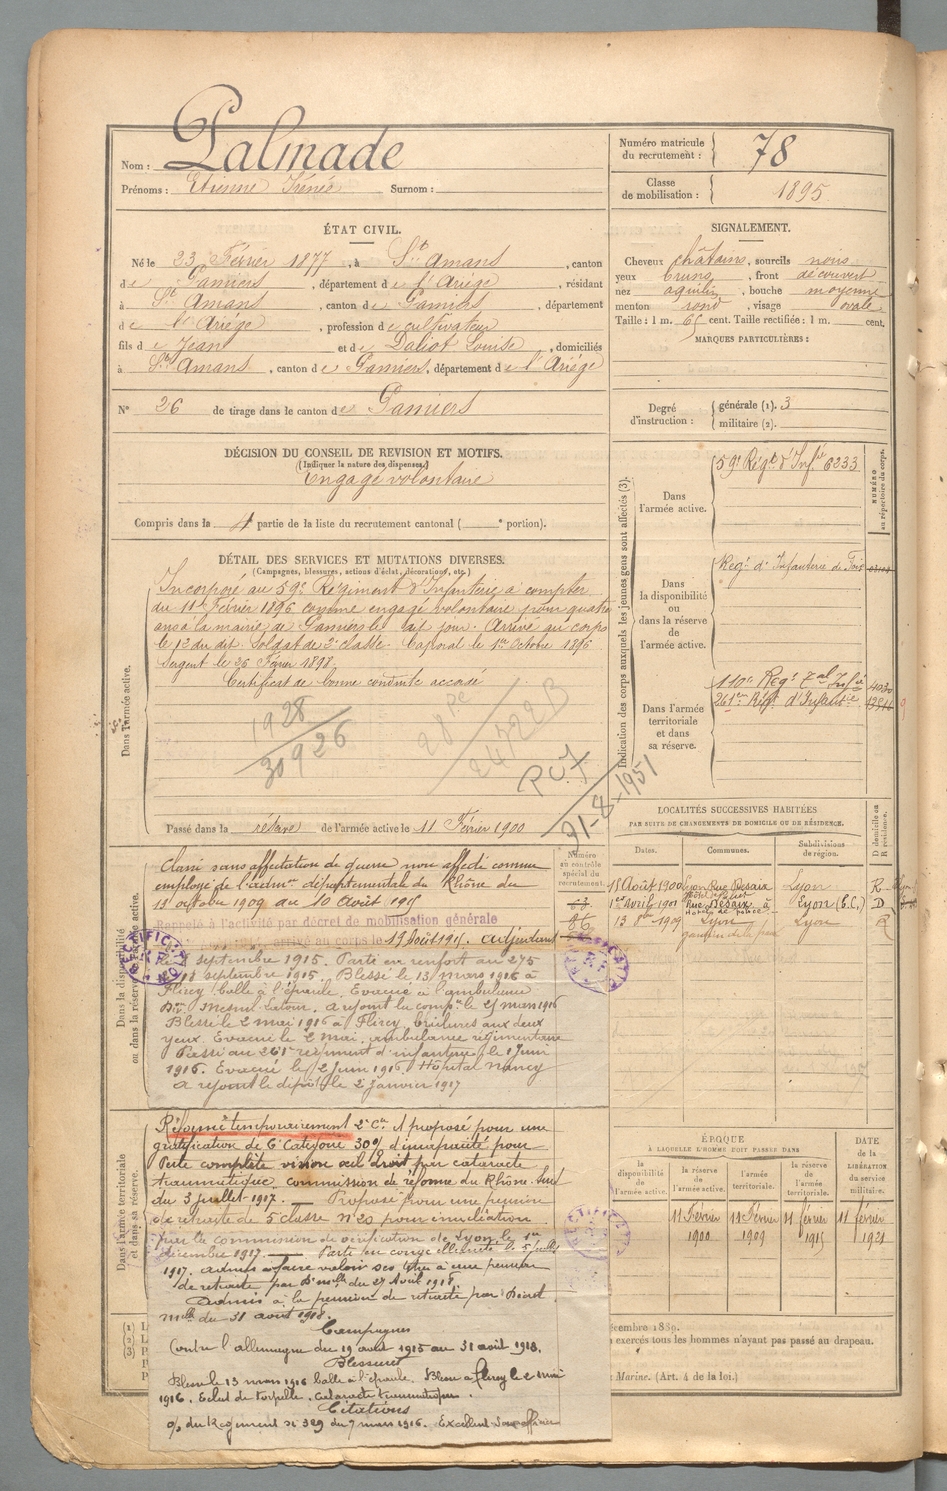 Nom : Palmade
Prénoms : Etienne Irénée Surnom :
Numéro matricule du recrutement : 78
Classe de mobilisation : 1895
ÉTAT CIVIL.
Né le 23 Février 1877, à St Amans, canton
de Pamiers, département de l'Ariège, résidant
à St Amans, canton de Pamiers, département
de l'Ariége, profession de cultivateur
fils de Jean et de Daliot Louise, domiciliés
à St Amans, canton de Pamiers, département de l'Ariége
N° 26 de tirage dans le canton de Pamiers
SIGNALEMENT.
Cheveux châtains, sourcils noirs
yeux bruns, front découvert
nez aquilin, bouche moyenne
menton rond, visage ovale
Taille : 1 m. 65 cent. Taille rectifiée : 1 m. cent.
MARQUES PARTICULIÈRES :
Degré d'instruction : générale (1). 3
militaire (2).
DÉCISION DU CONSEIL DE REVISION ET MOTIFS.
(Indiquer la nature des dispenses.)
Engagé volontaire
Compris dans la 4 partie de la liste du recrutement cantonal ( e portion).
DÉTAIL DES SERVICES ET MUTATIONS DIVERSES.
(Campagnes, blessures, actions d'éclat, décorations, etc.)
Dans l'armée active.
Incorporé au 59e Régiment d'Infanterie à compter
du 11 Février 1896 comme engagé volontaire pour quatre
ans à la mairie de Pamiers le dit jour. Arrivé au corps
le 12 du dit. Soldat de 2e classe. Caporal le 1er Octobre 1896
Sergent le 26 Février 1898.
Certificat de bonne conduite accordé
1928
30926
247223
P.C.F
31-8-1951
Passé dans la réserve de l'armée active le 11 Février 1900
Dans la disponibilité ou dans la réserve de l'armée active.
Classé sans affectation de guerre non affecté comme
employé de l'admon départementale du Rhône du
13 octobre 1909 au 10 Août 1915
Rappelé à l'activité par décret de mobilisation générale
arrivé au corps le 19 Août 1915. adjudant
septembre 1915. Parti en renfort au 275
18 septembre 1915. Blessé le 13 mars 1916 à
Flirey (balle à l'épaule. Evacué à l'ambulance
Don Mesnil Latour. a rejoint la compie le 25 mars 1916
Blessé le 2 mai 1916 à Flirey, brûlures aux deux
yeux. Evacué le 2 mai, ambulance régimentaire
Passé au 261e régiment d'infanterie le 1 Juin
1916. Evacué le 2 Juin 1916, Hôpital Nancy
a rejoint le dépôt le 2 Janvier 1917
Dans l'armée territoriale et dans sa réserve.
Réformé temporairement 2e Cie et proposé pour une
gratification de 6e Catégorie 30% d'incapacité pour
Perte complète vision œil droit par cataracte
traumatique, commission de réforme du Rhône Sud
du 3 juillet 1917. — Proposé pour une pension
de retraite de 5 classe n° 20 pour
par la commission de vérification de Lyon le 1er
décembre 1917. — Parti en congé illimité le 5 juillet
1917. admis à faire valoir ses titres à une pension
de retraite par Don mlle du 27 Avril 1918.
admis à la pension de retraite par Décis.
mlle du 31 août 1918.
Campagnes
Contre l'allemagne du 19 août 1915 au 31 août 1918.
Blessures
Blessé le 13 mars 1916 balle à l'épaule. Blessé à Flirey le 2 mai
1916. Eclat de torpille. Cataracte traumatique.
Citations
O/ du Régiment N° 329 du 7 mars 1916. Excellent Sous officier
Numéro au contrôle spécial du recrutement.
RECTIFICATION
R.F.
Indication des corps auxquels les jeunes gens sont affectés (3).
NUMÉRO au répertoire du corps.
Dans l'armée active.
59e Régt d'Infie 6233
Dans la disponibilité ou dans la réserve de l'armée active.
Regt d'Infanterie de Foix
Dans l'armée territoriale et dans sa réserve.
110e Regt Tal Infie 4030
261e Régt d'Infanterie
LOCALITÉS SUCCESSIVES HABITÉES
PAR SUITE DE CHANGEMENTS DE DOMICILE OU DE RÉSIDENCE.
Dates. Communes. Subdivisions de région. D domicile ou R résidence.
15 Août 1900 Lyon Rue Desaix Lyon R
1er Avril 1901 Rue Desaix à Lyon (E.C.) D
Hôtel de police
13 8bre 1909 Lyon Lyon R
gardien de la paix
ÉPOQUE
À LAQUELLE L'HOMME DOIT PASSER DANS
la disponibilité de l'armée active. la réserve de l'armée active. l'armée territoriale. la réserve de l'armée territoriale. DATE de la LIBÉRATION du service militaire.
11 Février 1900 11 Février 1909 11 février 1915 11 février 1921
écembre 1889.
exercés tous les hommes n'ayant pas passé au drapeau.
Marine. (Art. 4 de la loi.)
(1) L
(2) L
(3) P